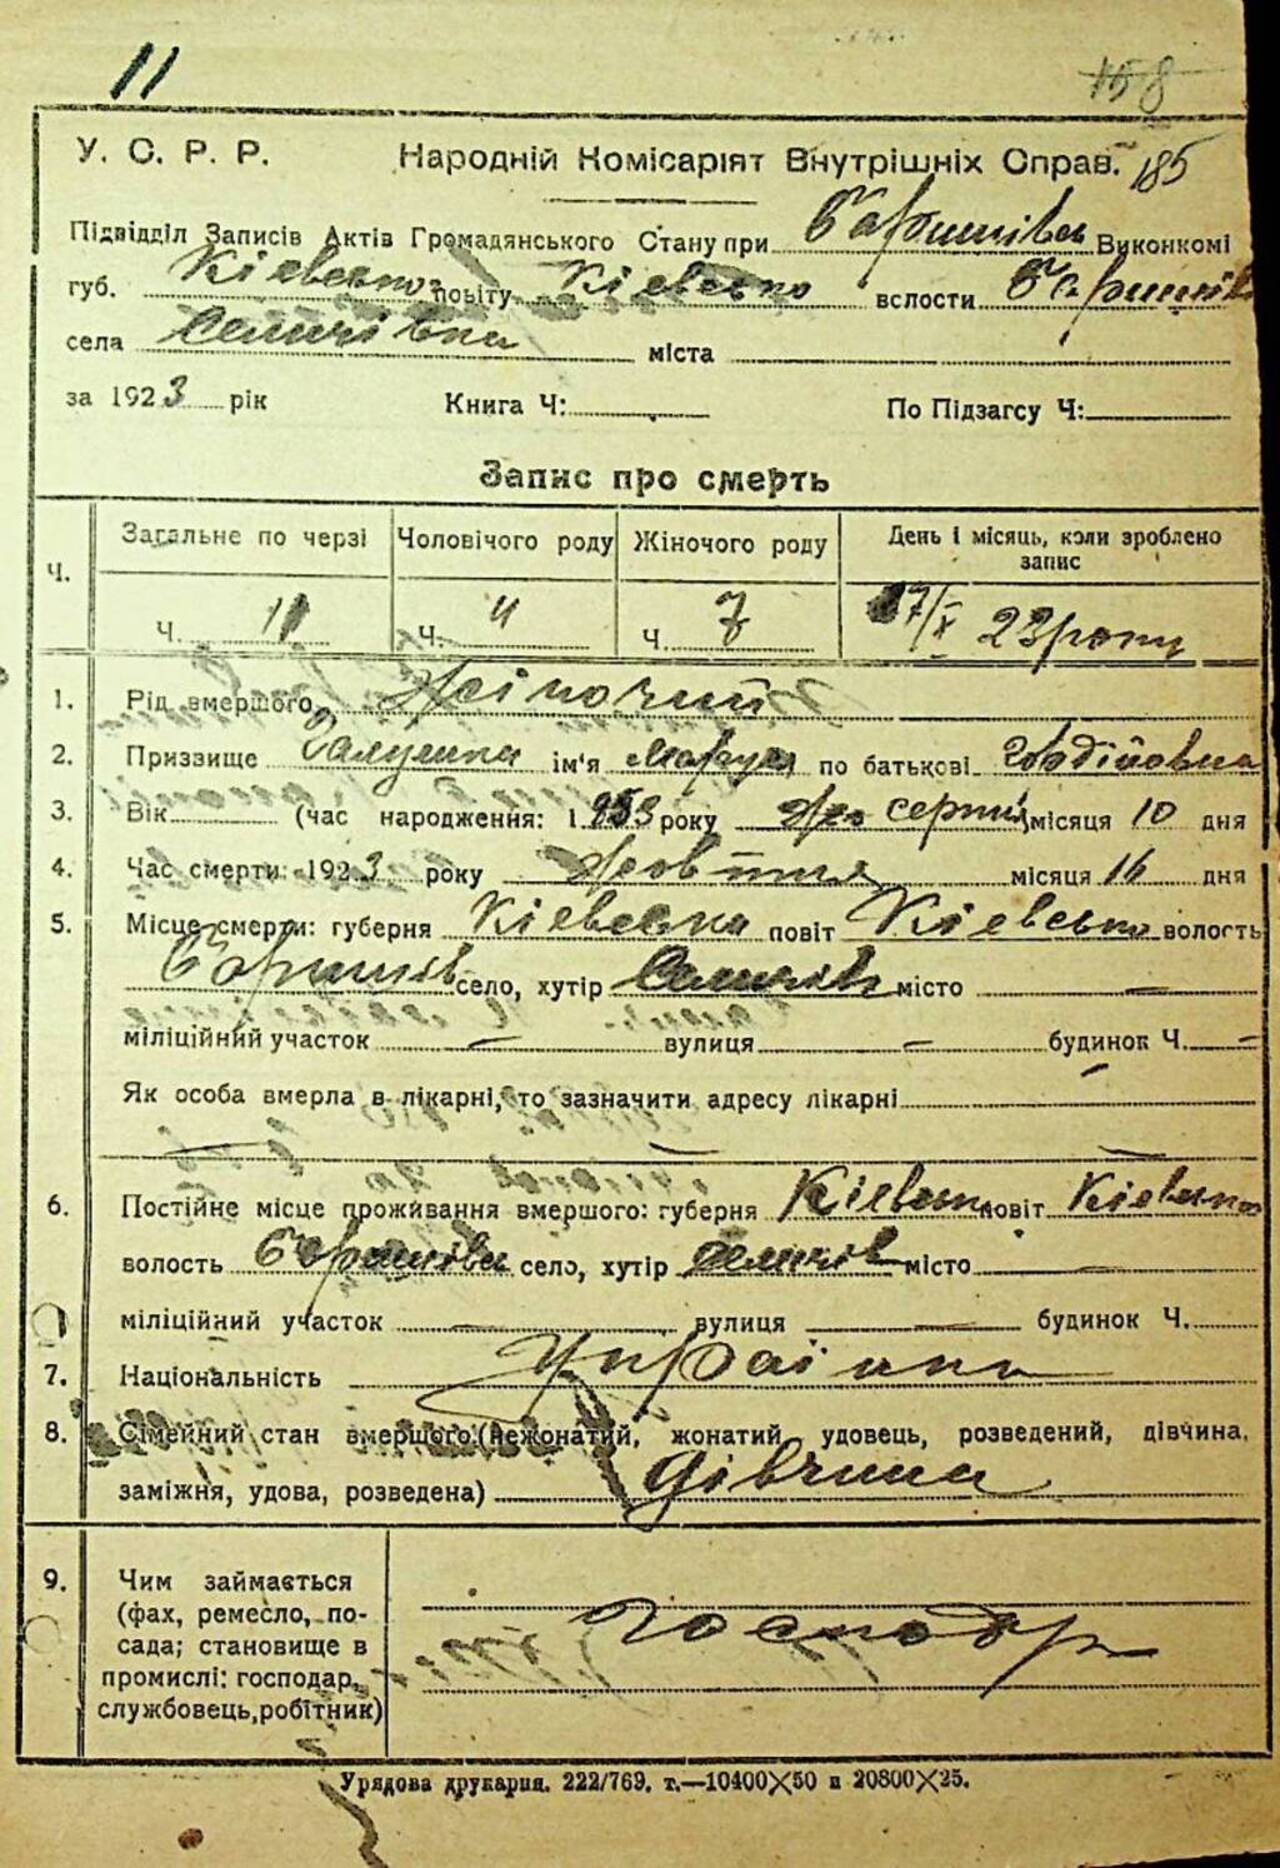 11
158
У. С. Р. Р. Народній Комісаріят Внутрішніх Справ. 185
Підвідділ Записів Актів Громадянського Стану при Баришівск Виконкомі
губ. Кієвсько повіту Кієвсько вслости Баришів
села Селичівка міста
за 1923 рік Книга Ч: По Підзагсу Ч:
Запис про смерть
Ч. Загальне по черзі Чоловічого роду Жіночого роду День і місяць, коли зроблено запис
Ч. 11 Ч. 4 Ч. 7 17/X 23 року
1. Рід вмершого Жіночий
2. Призвище Галушка ім'я по батькові Овдійовна
3. Вік (час народження: 1853 року серпня місяця 10 дня
4. Час смерти: 1923 року Жовтня місяця 16 дня
5. Місце смерти: губерня Кієвська повіт Кієвсько волость
Баришів село, хутір Селичів місто —
міліційний участок — вулиця — будинок Ч. —
Як особа вмерла в лікарні, то зазначити адресу лікарні
— — —
6. Постійне місце проживання вмершого: губерня Кієвськ повіт Кієвсько
волость Баришівск село, хутір Селичів місто —
міліційний участок — вулиця — будинок Ч.
7. Національність Українк
8. Сімейний стан вмершого (нежонатий, жонатий, удовець, розведений, дівчина,
заміжня, удова, розведена) дівчина
9. Чим займається
(фах, ремесло, по-
сада; становище в
промислі: господар,
службовець, робітник)
господр
Урядова друкарня. 222/769. т.—10400×50 и 20800×25.